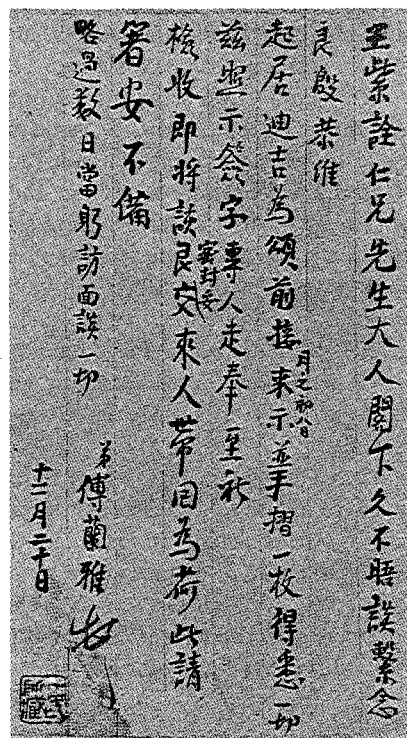 紫詮仁兄先生大人閣下久不晤談繫念
良殷恭維
起居迪吉為頌前接月之初八日來示並手摺一扣得悉一切
茲照示簽字專人走奉至祈
檢收即將該良密封妥交來人帶回為荷此請
箸安不備
略過數日當躬訪面談一切
弟傅蘭雅
十二月二十日